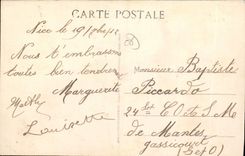 CARTE POSTALE
Nice le 19
Nous t'embrassons
toutes bien tendrement
Marguerite
Louisette
Monsieur Baptiste
Piccardo
24
de Mantes
Gassicourt
(S et O)